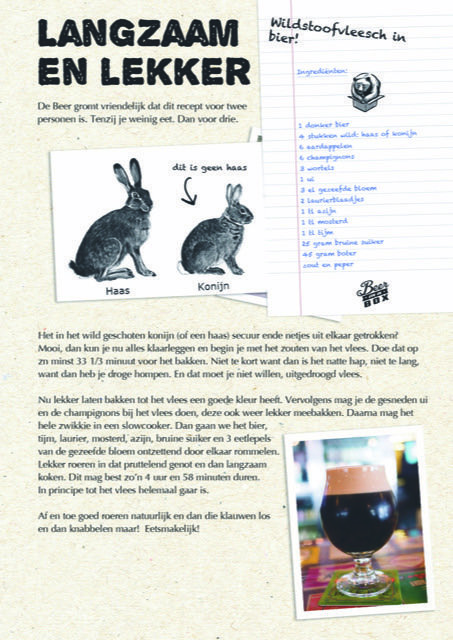 LANGZAAM
EN LEKKER
De Beer gromt vriendelijk dat dit recept voor twee
personen is. Tenzij je weinig eet. Dan voor drie.
Wildstoofvleesch in
bier!
Ingrediënten:
1 donker bier
4 stukken wild: haas of konijn
6 aardappelen
6 champignons
3 wortels
1 ui
3 el gezeefde bloem
2 laurierblaadjes
1 tl azijn
1 tl mosterd
1 tl tijm
25 gram bruine suiker
45 gram boter
zout en peper
Beer
BOX
dit is geen haas
Haas
Konijn
Het in het wild geschoten konijn (of een haas) secuur ende netjes uit elkaar getrokken?
Mooi, dan kun je nu alles klaarleggen en begin je met het zouten van het vlees. Doe dat op
zn minst 33 1/3 minuut voor het bakken. Niet te kort want dan is het natte hap, niet te lang,
want dan heb je droge hompen. En dat moet je niet willen, uitgedroogd vlees.
Nu lekker laten bakken tot het vlees een goede kleur heeft. Vervolgens mag je de gesneden ui
en de champignons bij het vlees doen, deze ook weer lekker meebakken. Daarna mag het
hele zwikkie in een slowcooker. Dan gaan we het bier,
tijm, laurier, mosterd, azijn, bruine suiker en 3 eetlepels
van de gezeefde bloem ontzettend door elkaar rommelen.
Lekker roeren in dat pruttelend genot en dan langzaam
koken. Dit mag best zo'n 4 uur en 58 minuten duren.
In principe tot het vlees helemaal gaar is.
Af en toe goed roeren natuurlijk en dan die klauwen los
en dan knabbelen maar! Eetsmakelijk!